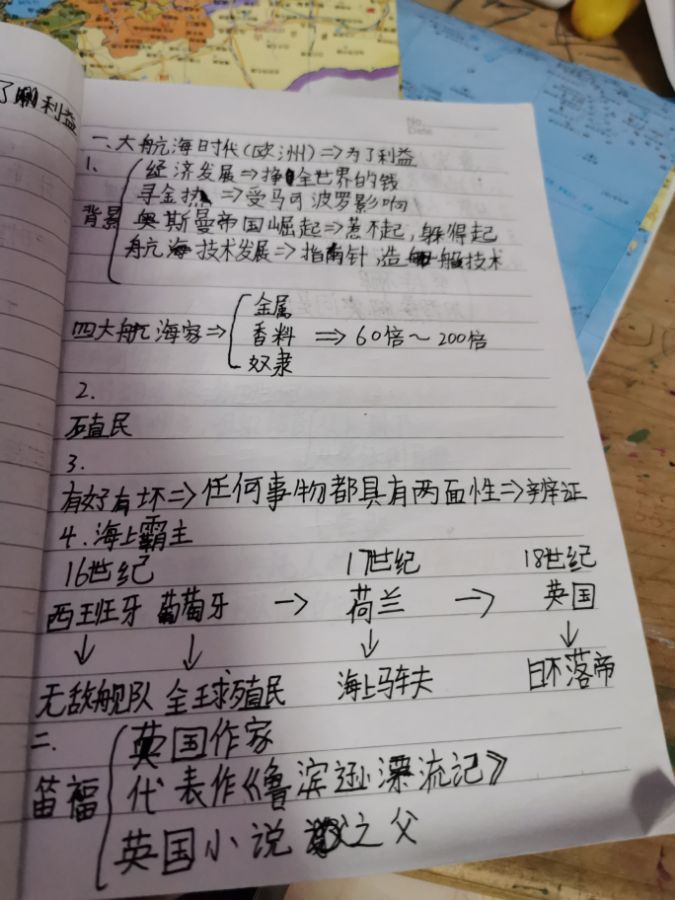 了利益
No.
Date
一、大航海时代(欧洲)⇒为了利益
1.
背景
经济发展⇒挣全世界的钱
寻金热⇒受马可波罗影响
奥斯曼帝国崛起⇒惹不起,躲得起
航海技术发展⇒指南针,造船技术
四大航海家⇒
金属
香料 ⇒60倍~200倍
奴隶
2.
殖民
3.
有好有坏⇒任何事物都具有两面性⇒辨证
4.海上霸主
16世纪 17世纪 18世纪
西班牙 葡萄牙 → 荷兰 → 英国
↓ ↓ ↓ ↓
无敌舰队 全球殖民 海上马车夫 日不落帝
二、
笛福
英国作家
代表作《鲁滨逊漂流记》
英国小说之父